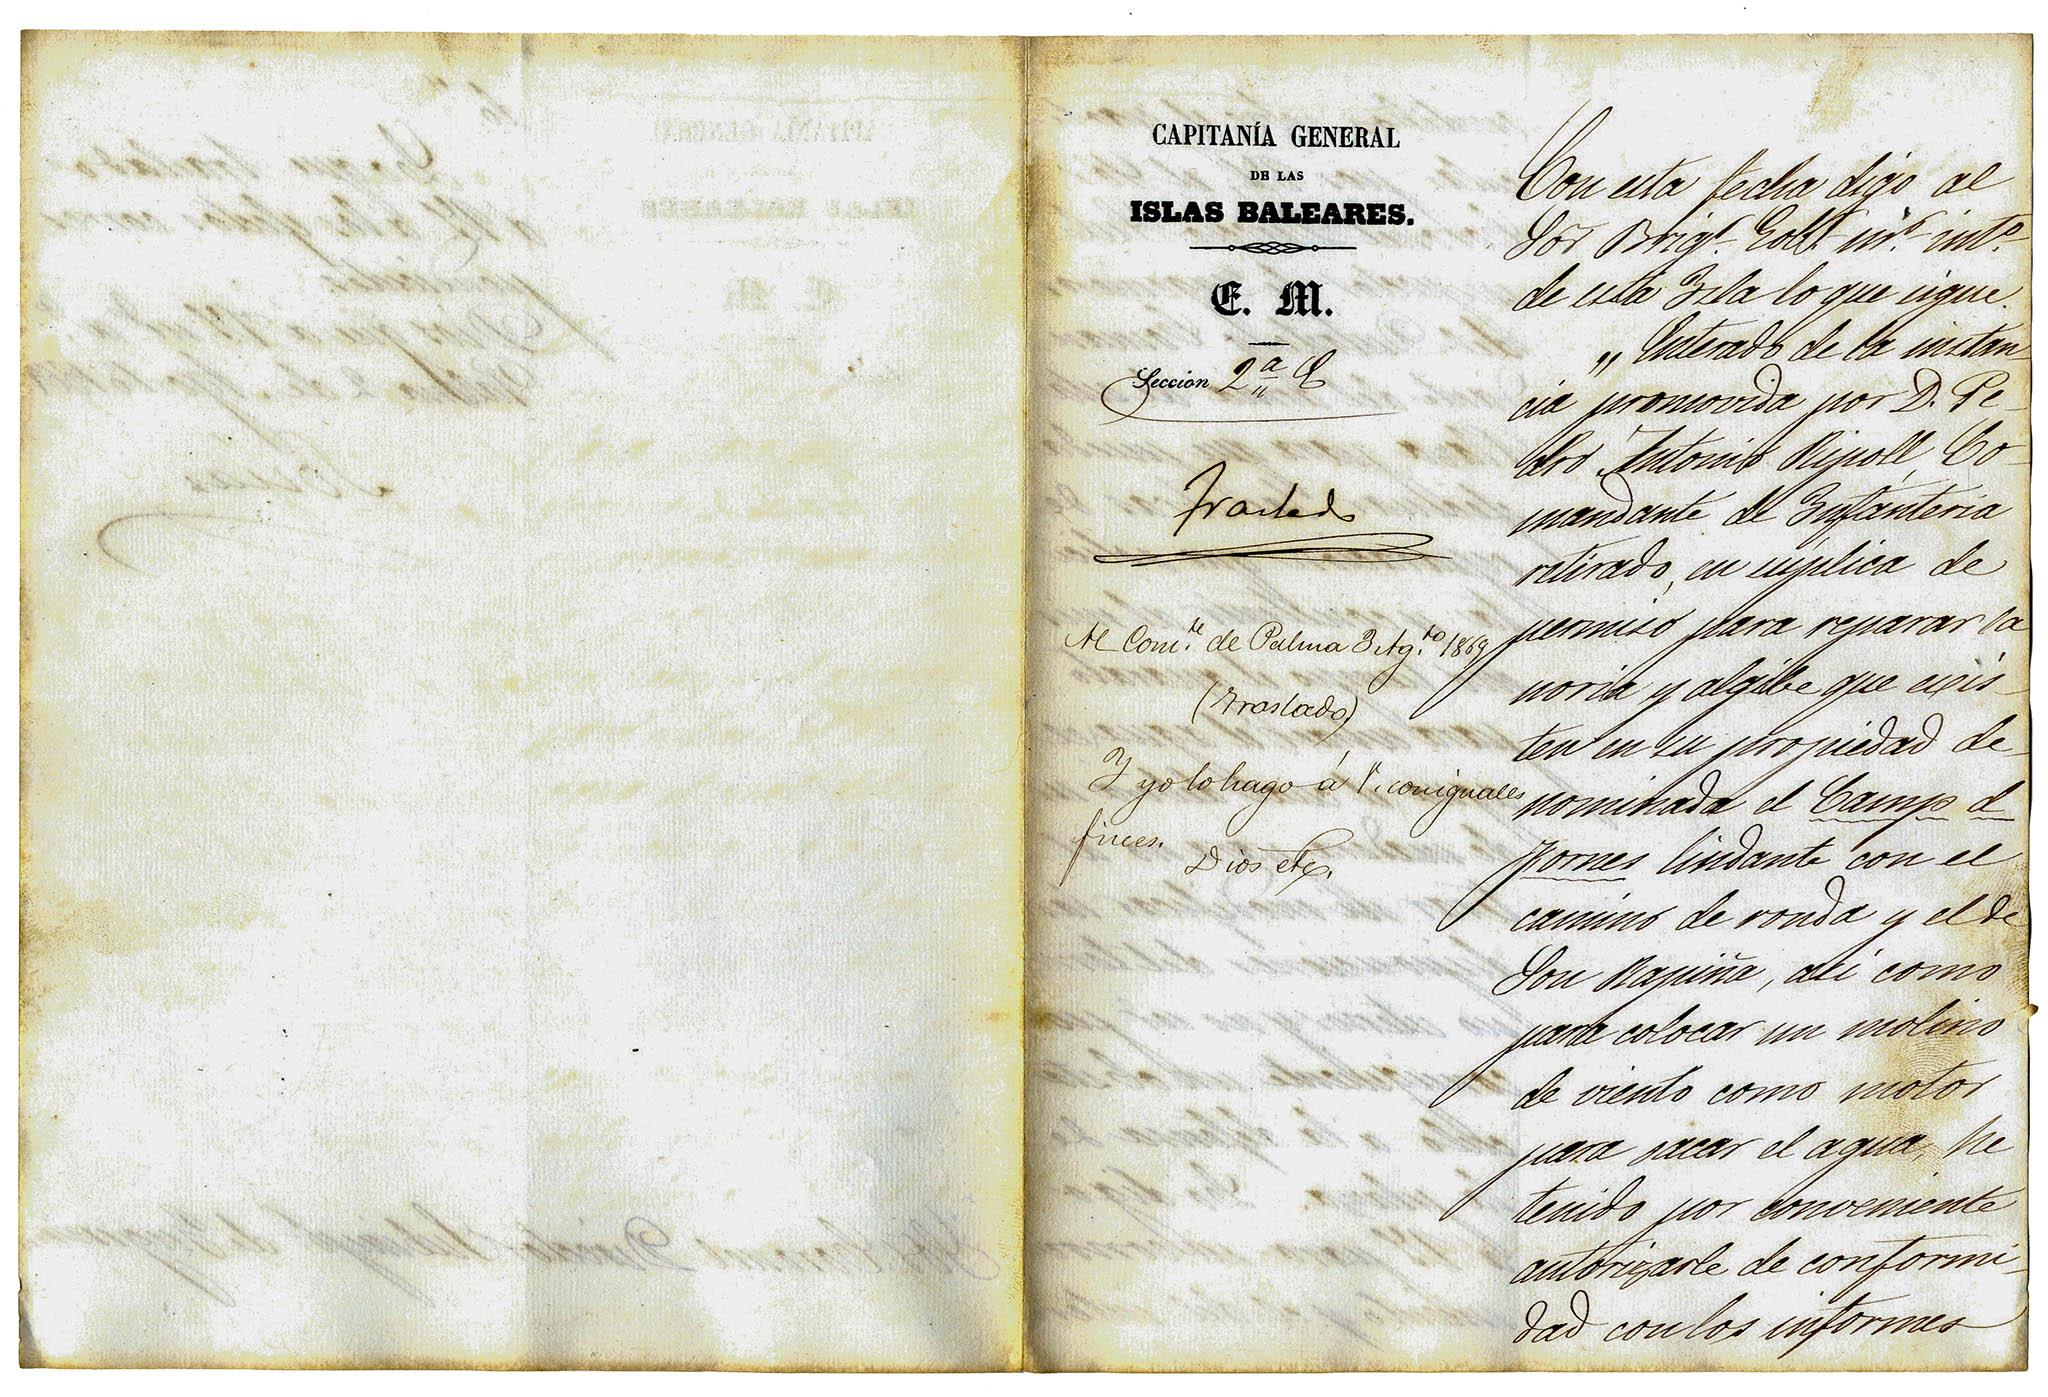 CAPITANÍA GENERAL
DE LAS
ISLAS BALEARES.
E. M.
Seccion 2ª
Traslado
Al Com.te de Palma 3 Ag.to 1869
(Traslado)
Y yo lo hago á V. con iguales
fines.
Dios etc.
Con esta fecha digo al
Sor Brigr. int.o
de esta Isla lo que sigue.
„ Enterado de la instan-
cia promovida por D. Pe-
dro Antonio Ripoll, Co-
mandante de Infanteria
retirado, en súplica de
permiso para reparar la
noria y algibe que exis-
ten en su propiedad de-
nominada el Camp d
Fornes lindante con el
camino de ronda y el de
Son Rapiña, asi como
para colocar un molino
de viento como motor
para sacar el agua, he
tenido por conveniente
autorizarle de conformi-
dad con los informes